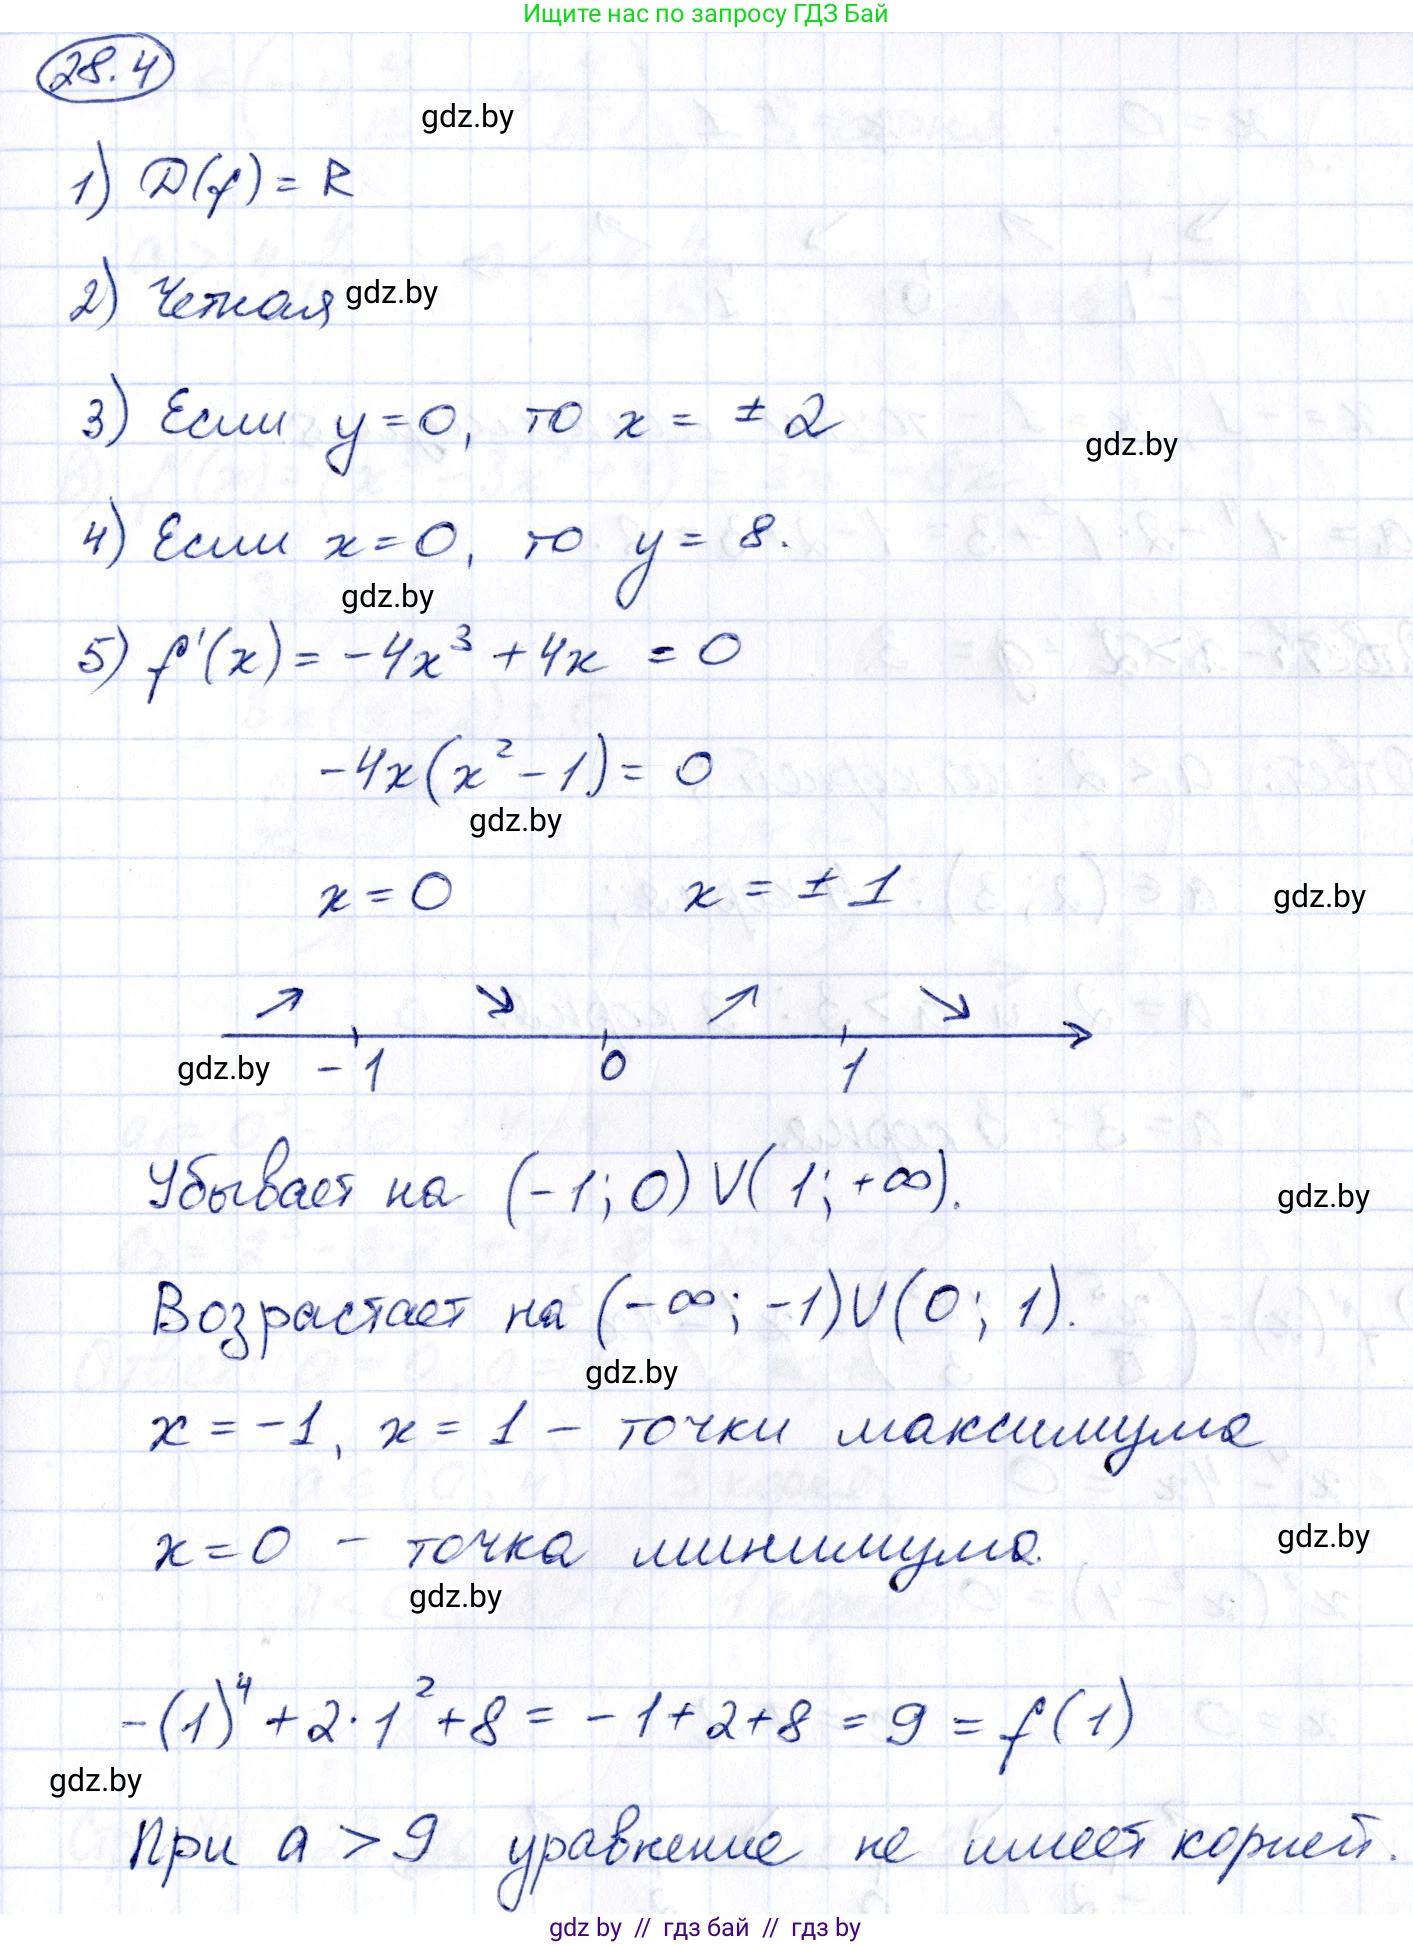 Ищите нас по запросу ГДЗ Бай
28.4
gdz.by
1) D(f) = R
2) Четная gdz.by
3) Если y=0, то x = ±2
gdz.by
4) Если x=0, то y = 8.
gdz.by
5) f'(x) = -4x³ + 4x = 0
-4x(x² - 1) = 0
gdz.by
x = 0 x = ±1
gdz.by
↗ ↘ ↗ ↘
gdz.by -1 0 1
Убывает на (-1; 0) V (1; +∞).
gdz.by
Возрастает на (-∞; -1) V (0; 1).
gdz.by
x = -1, x = 1 – точки максимума
x = 0 – точка минимума.
gdz.by
gdz.by
-(1)⁴ + 2·1² + 8 = -1 + 2 + 8 = 9 = f(1)
gdz.by
При a > 9 уравнение не имеет корней.
gdz by // гдз бай // gdz by